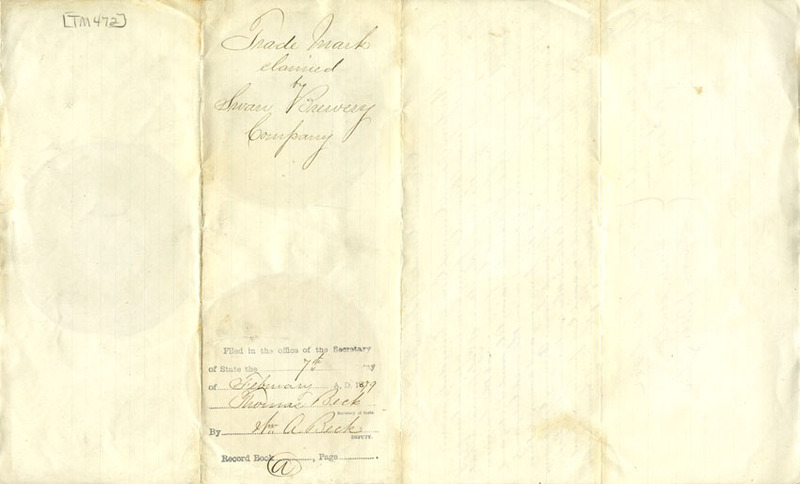 [TM 472]
Trade Mark
claimed
by
Swan Brewery
Company
Filed in the office of the Secretary
of State the 7th day
of February A. D. 1879
Thomas Beck
Secretary of State
By Wm A Beck
DEPUTY.
Record Book A, Page